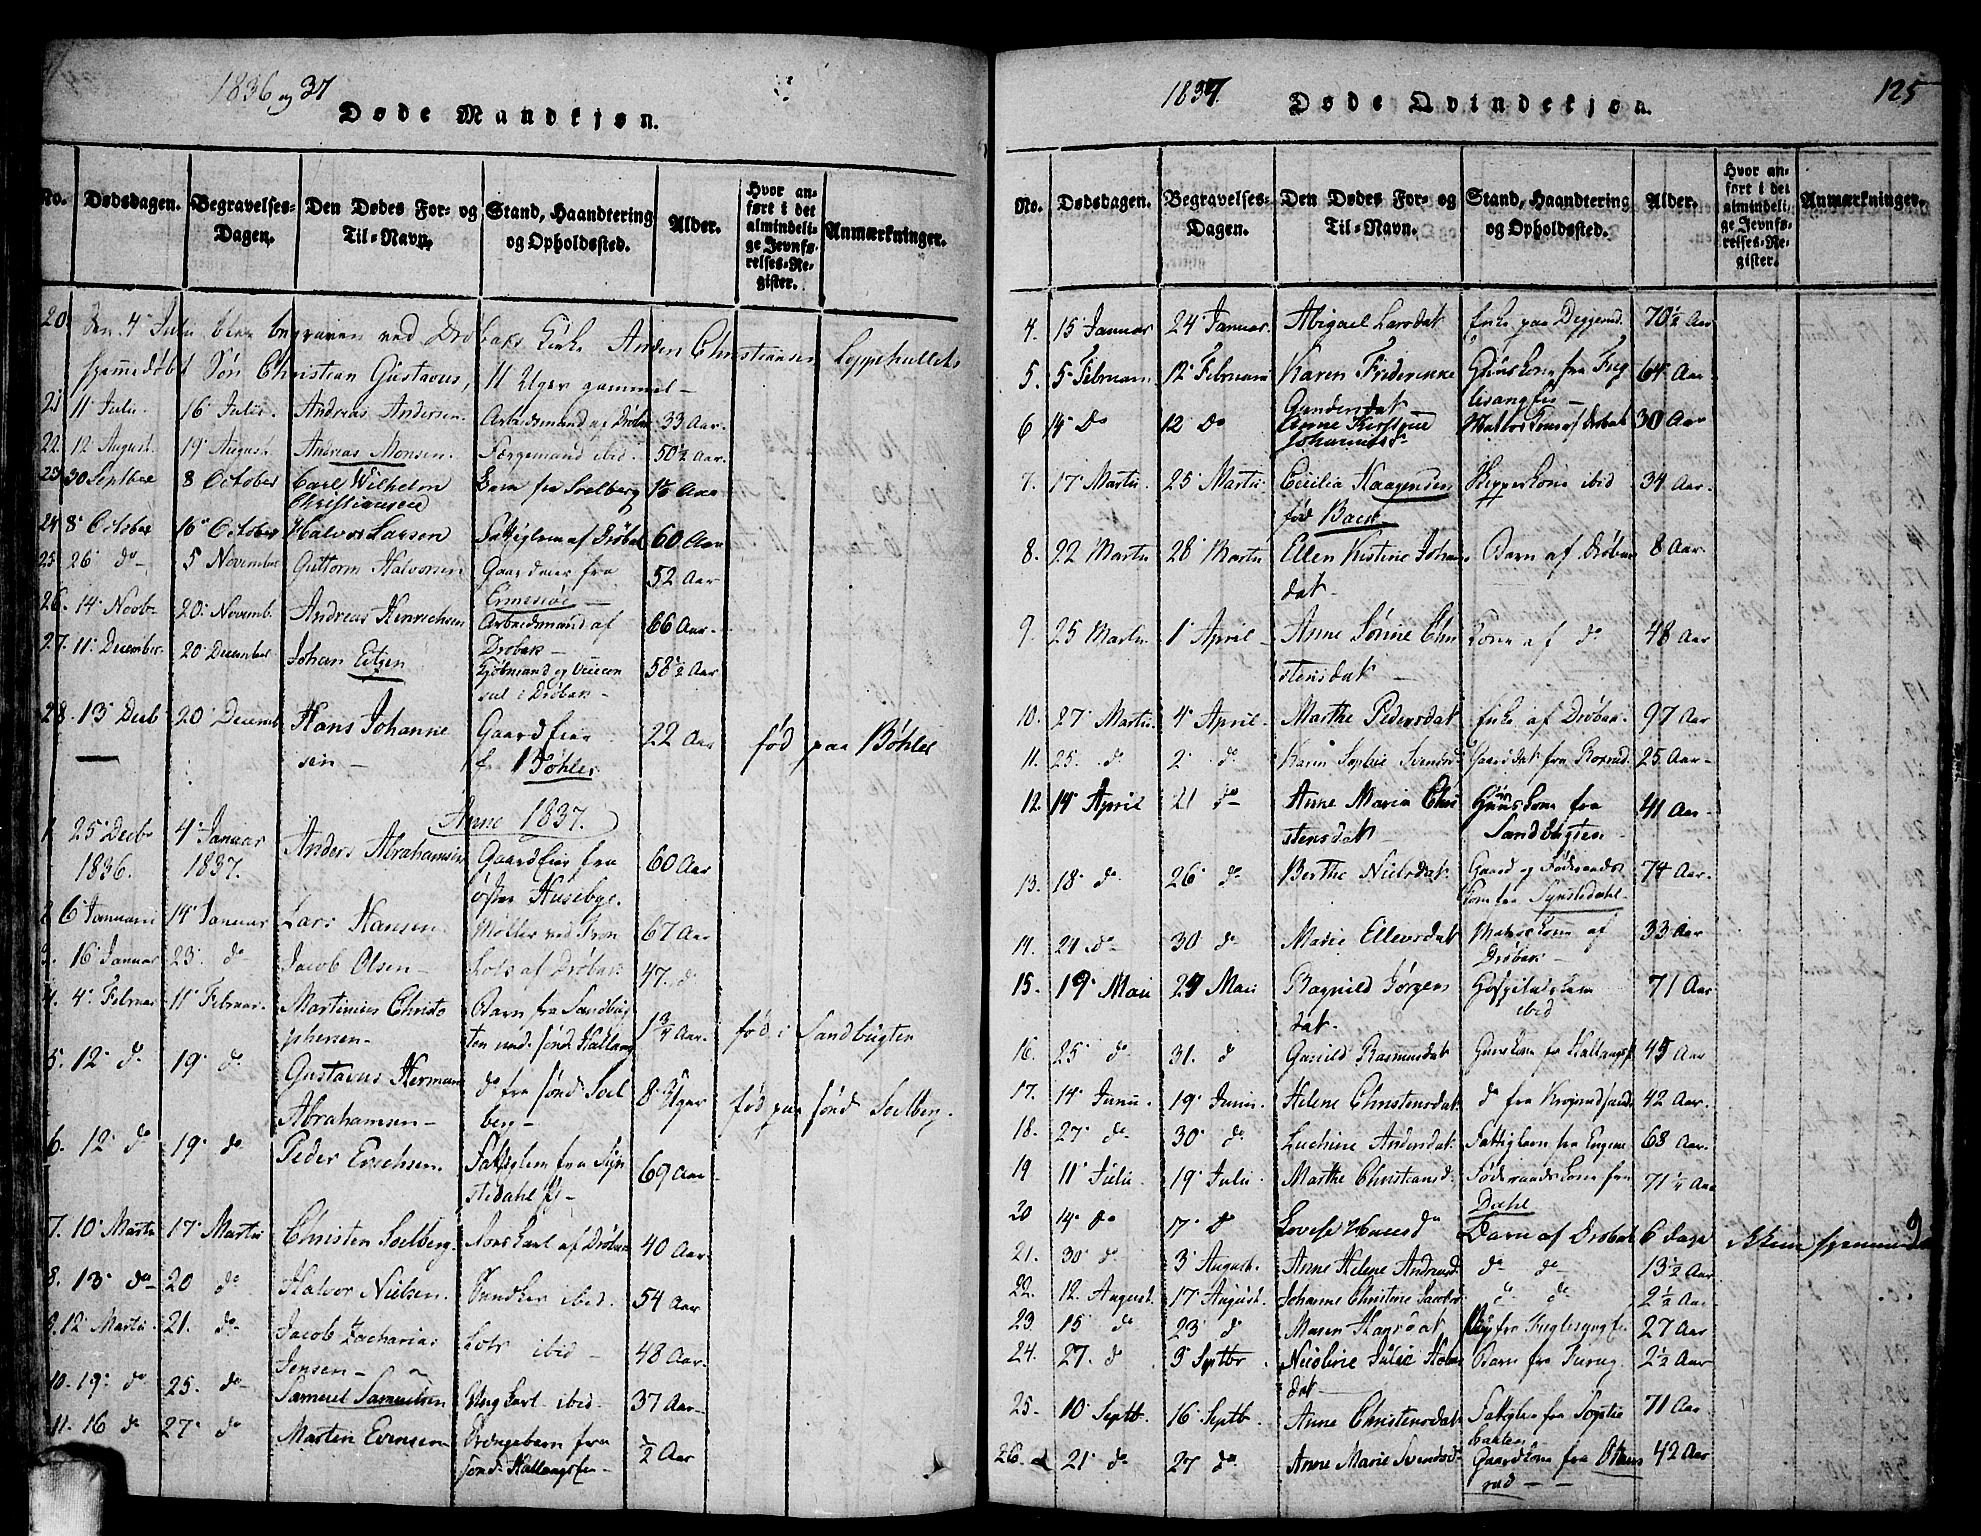 1836 og 37
Døde Mandkjøn.
No. Dødsdagen. Begravelses-Dagen. Den Dødes For- og Til-Navn. Stand, Haandtering og Opholdssted. Alder. Hvor anført i det almindelige Jevnførelses-Register. Anmærkninger.
20. den 4 Juli blev begraven ved Drøbaks Kirke Anders Christiansen Loppehullets
hjemmedøbt Søn Christian Gustavus, 11 Uger gammel –
21 11 Juli. 16 Julii. Andreas Andersen. Arbeidsmand af Drøbak 33 Aar.
22. 12 August. 19 August Andreas Monsen. Færgemand ibid. 50½ Aar.
23 30 Septber 8 October Carl Wilhelm Christiansen Barn fra Soelberg Aar
24 8 October 16 October Halvor Larsen Fattiglem af Drøbak 60 Aar
25 26 do 5 November Guttorm Halvorsen Gaardeier fra 52 Aar
26. 14 Novbr 20. Novemb. Andreas Henrichsen Arbeidsmand af Drøbak – 66 Aar.
27. 11 December. 20 December Johan Eitzen Kjøbmand og Viicon sul i Drøbak – 58½ Aar
28. 13 Decb 20 Decemb Hans Johanne sen – Gaardeier f. Bøhler 22 Aar født paa Bøhler
Anno 1837.
1 25 Decbr 1836. 4 Januar 1837. Anders Abrahamsen Gaardeier fra øster Husebye. 60 Aar
2 6 Januarii 14 Januar Lars Hansen Møller ved 67 Aar
3. 16 Januar 23. do Jacob Olsen – Lots af Drøbak 47. do
4. 4. Februar 11 Februar. Martinius Christo phersen – Barn fra Sandbug ten nedr. søndr Hallang 1¾ Aar. født i Sandbugten
5. 12 do 19 do Gustavus Herman Abrahamsen – do fra søndr Soel berg – 8 Uger født paa søndr Soelberg.
6. 12 do 19 do Peder Erichsen. Fattiglem fra Syn stedahl – 69 Aar
7. 10 Martii 17 Martii Christen Soelberg. Ungkarl af Drøbak 40 Aar
8. 13 do 20 do Halvor Nielsen. Snedker ibid. 54 Aar
9. 12 Martii. 21. do Jacob Zacharias Jensen – Lots ibid – 48 Aar.
10. 19 do 25. do Samuel Samuelsen Ungkarl ibid. 37 Aar
11. 16 do 27 do Marten Evensen Drengebarn fra søndr Hallangs ½ Aar
1837.
Døde Qvindekjøn.
125
No. Dødsdagen. Begravelses-Dagen. Den Dødes For- og Til-Navn. Stand, Haandtering og Opholdssted. Alder. Hvor anført i det almindelige Jevnførelses-Register. Anmærkninger.
4. 15 Januar 24 Januar. Abigael Larsdat Enke paa Deggerud. 70½ Aar
5. 5 Februari 12 Februari Karen Friderikke Gundersdat Huuskone fra 64 Aar
6 14 Do 12 Do Anne Kirstine Johannesd. Matroskone af Drøbak 30 Aar
7. 17 Martii. 25 Martii. Cecilia Haagensen født Back Skipperkone ibid 34 Aar.
8. 22 Martii 28 Martii Ellen Kistine Johans dat. Barn af Drøbak 8 Aar.
9. 25 Martii 1 April Anne Sønne Chri stensdat – Kone af do 48 Aar
10. 27 Martii. 4 April. Marthe Pedersdat Enke af Drøbak. 97 Aar
11. 25. do 2 do Karen Sophie Svendsd. Gaarddat. fra Roxrud 25 Aar
12. 14 April 21 do Anne Maria Chri stensdat. Huuskone fra Sandbugten 41 Aar
13. 18 do 26 do Berthe Nielsdat. Gaard og Føderaads kone fra Synstedahl. 74 Aar.
14. 21 do 30 do Marie Ellevsdat Matroskone af Drøbak – 33 Aar
15. 19 Maii 24 Maii Ragnild Jørgens dat. Hospitalslem ibid 71 Aar
16. 25 do 31. do Gunild Rasmusdat Huuskone fra Hallangs 45 Aar
17. 14 Junii. 19 Junii. Helene Christensdat. do fra 42 Aar.
18. 27 do 30 do Luchine Andersdat Fattiglem fra Engene 68 Aar.
19 11 Julii 19 Julii Marthe Christiansd. Føderaadskone fra Dahl 71¼ Aar
20 14 do 17 Do Lovise Barn af Drøbak 6 Dage
21. 30 do 3 August. Anne Helene Andreasd. do do 13½ Aar
22. 12. August. 17 August. Johanne Christine Jacobsd. do do 2½ Aar
23. 15 do 23 do Maren Pige fra 27 Aar
24. 27. do 3 Septbr. Nicoline Julie dat Barn fra 2½ Aar
25. 10 Septb. 16 Septb Anne Christensdat Fattiglem fra 71 Aar
26. 21 do 27 do Anne Marie Svendsd. Gaardkone fra rud – 42 Aar